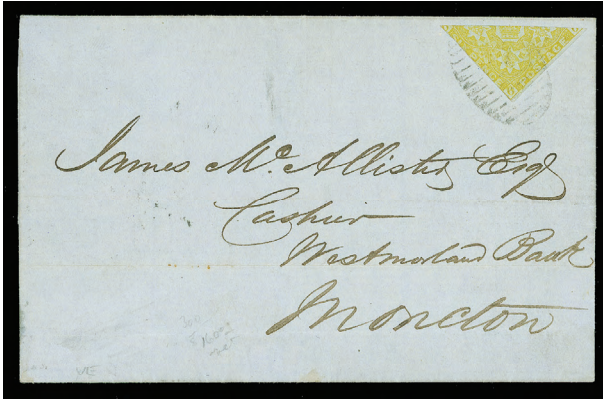 James Mc. Allister Esq
Cashier
Westmorland Bank
Moncton